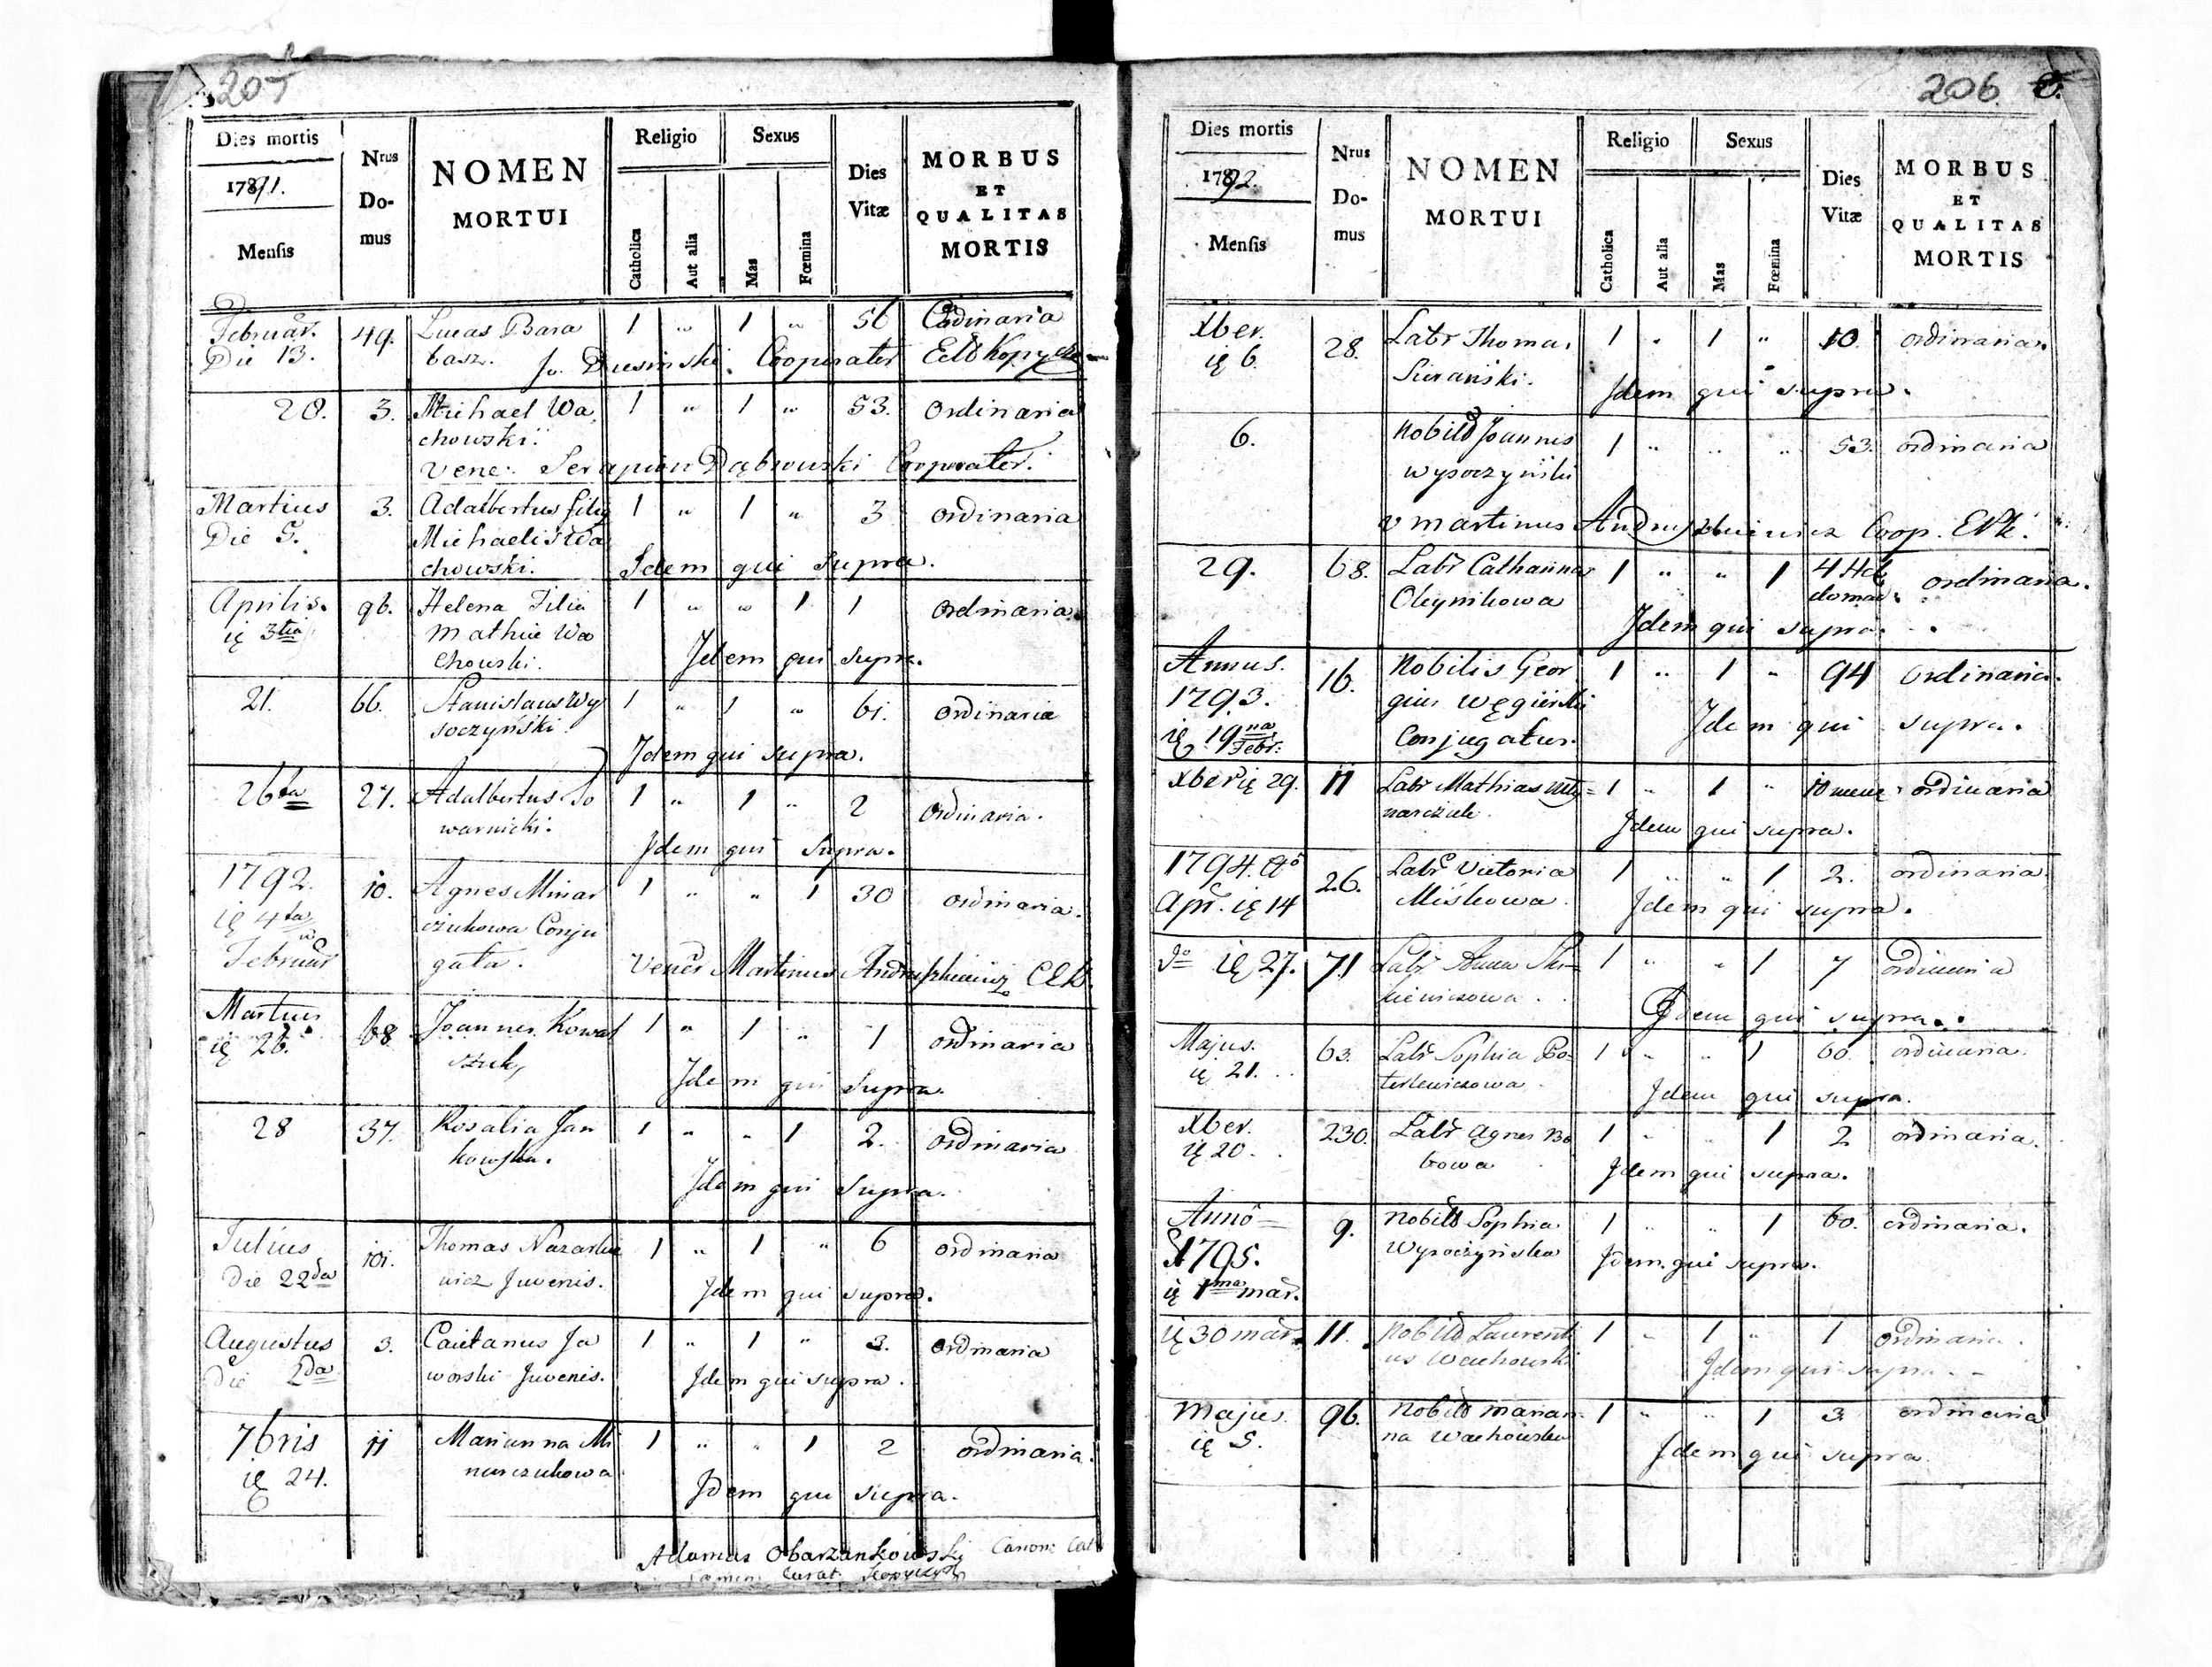 205
Dies mortis
1791.
Mensis
Nrus Domus
NOMEN
MORTUI
Religio
Catholica
Aut alia
Sexus
Mas
Fœmina
Dies
Vitæ
MORBUS
ET
QUALITAS
MORTIS
Februar. 49. Lucas Bara 1 " 1 " 56 Ordinaria
Die 13. basz. Cooperator
28. 3. Michael Wa 1 " 1 " 53. Ordinaria
chowski.
Vene: Serapion Dąbrowski Cooperator.
Martius 3. Adalbertus filig 1 " 1 " 3 ordinaria
Die 5. Michaelis Wa
chowski. Idem qui supra.
Aprilis. 96. Helena Filia 1 " " 1 1 ordinaria
ię 3tia Mathiæ Wa
chowski. Idem qui supra.
21. 66. Stanislaus Wy 1 " 1 " 61. ordinaria
soczyński. Idem qui supra.
26ta 27. Adalbertus So 1 " 1 " 2 Ordinaria.
warnicki. Idem qui supra.
1792. 10. Agnes Minar 1 " " 1 30 ordinaria.
ię 4ta czukowa Conju
Februar gata. Vener Martinus
Martius 68 Joannes Kowal 1 " 1 " 1 ordinaria
ię 26. czuk, Idem qui supra.
28 37. Rosalia Jan 1 " " 1 2. ordinaria
kowska. Idem qui supra.
Julius 101. Thomas Nazarke 1 " 1 " 6 ordinaria
Die 22da wicz Juvenis. Idem qui supra.
Augustus 3. Caietanus Ja 1 " 1 " 3. ordinaria
Die 2da worski Juvenis. Idem qui supra.
7bris 11 Marianna Mi 1 " " 1 2 ordinaria.
ię 24. narczukowa Idem qui supra.
Adamus Obarzankowski Canon: Cat
Curat.
206
Dies mortis
1792.
Mensis
Nrus Domus
NOMEN
MORTUI
Religio
Catholica
Aut alia
Sexus
Mas
Fœmina
Dies
Vitæ
MORBUS
ET
QUALITAS
MORTIS
Xber. 28. Labr Thomas 1 " 1 " 10. ordinaria
ię 6. Idem qui supra.
6. Nobilis Joannes 1 " " " 53. ordinaria
Wysoczyński
V Martinus Coop.
29. 68. Labr Catharina 1 " " 1 4 Heb ordinaria.
Oleynikowa domad.
Idem qui supra.
Annus. 16. Nobilis Geor 1 " 1 " 94 Ordinaria.
1793. gius Węgierski
ię 19na Febr: Conjugatus. Idem qui supra.
Xber ię 29. 11 Labr Mathias Mły= 1 " 1 " 10 mens ordinaria
narczuk. Idem qui supra.
1794. Aº 26. Labr Victoria 1 " " 1 2. ordinaria.
Apr. ię 14 Miśkowa. Idem qui supra.
dº ię 27. 71 Labr Anna 1 " " 1 7 ordinaria
Idem qui supra.
Majus. 63. Labr Sophia 1 " " 1 60. ordinaria.
ię 21. Idem qui supra.
Xber. 230. Labr Agnes Bo 1 " " 1 2 ordinaria.
ię 20. Idem qui supra.
Annô= 9. Nobilis Sophia 1 " " 1 60. ordinaria.
1795. Wysoczyńska Idem qui supra.
ię 1ma mar.
ię 30 mar. 11. Nobilis Laurenti 1 " 1 " 1 ordinaria.
us Wachowski Idem qui supra.
Majus. 96. Nobilis Marian 1 " " 1 3 ordinaria
ię 5. na Wachowska Idem qui supra